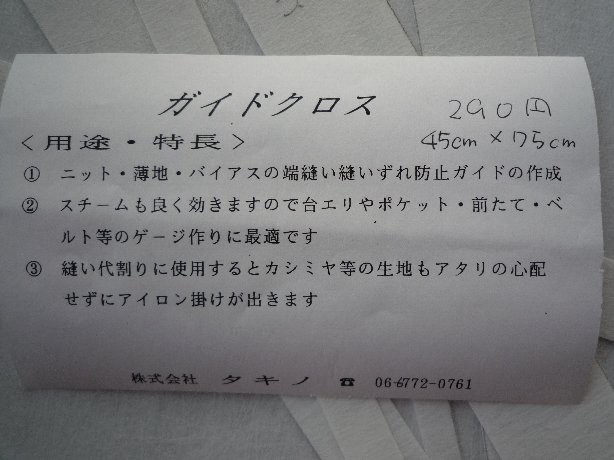 ガイドクロス 290円
<用途・特長> 45cm×75cm
① ニット・薄地・バイアスの端縫い縫いずれ防止ガイドの作成
② スチームも良く効きますので台エリやポケット・前たて・ベ
ルト等のゲージ作りに最適です
③ 縫い代割りに使用するとカシミヤ等の生地もアタリの心配
せずにアイロン掛けが出きます
株式会社 タキノ ☎ 06-6772-0761